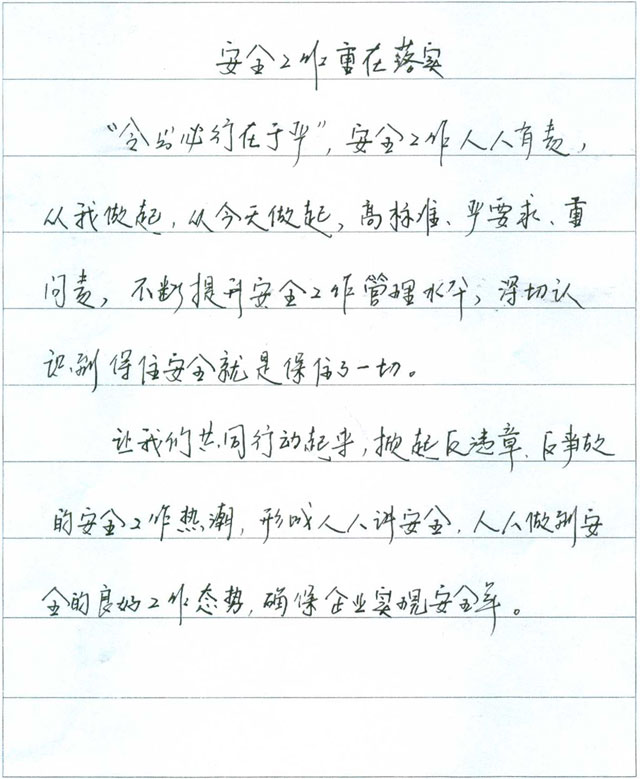 安全工作重在落实
“令出必行在于严”，安全工作人人有责，
从我做起，从今天做起，高标准、严要求、重
问责，不断提升安全工作管理水平，深切认
识到保住安全就是保住了一切。
让我们共同行动起来，掀起反违章、反事故
的安全工作热潮，形成人人讲安全，人人做到安
全的良好工作态势，确保企业实现安全年。